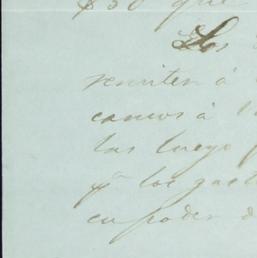 $50 que
Los
remiten á
camos á
las luego
pª los gast
en poder d